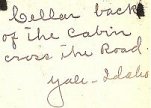 Cellar back
of the Cabin
cross the Road.
Yale - Idaho